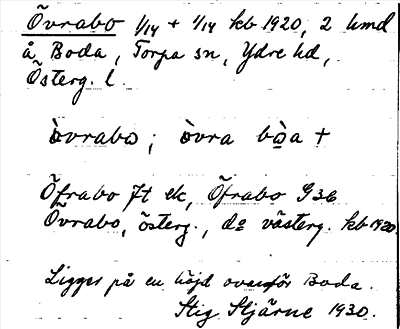 Övrabo 1/14 + 1/14 kb 1920, 2 hmd
å Boda, Torpa sn, Ydre hd,
Österg. l.
òvrabo ; òvra bòa +
Öfrabo Jt ek, Öfrabo G 36
Övrabo, österg., do västerg. kb 1920
Ligger på en höjd ovanför Boda.
Stig Stjärne 1930.